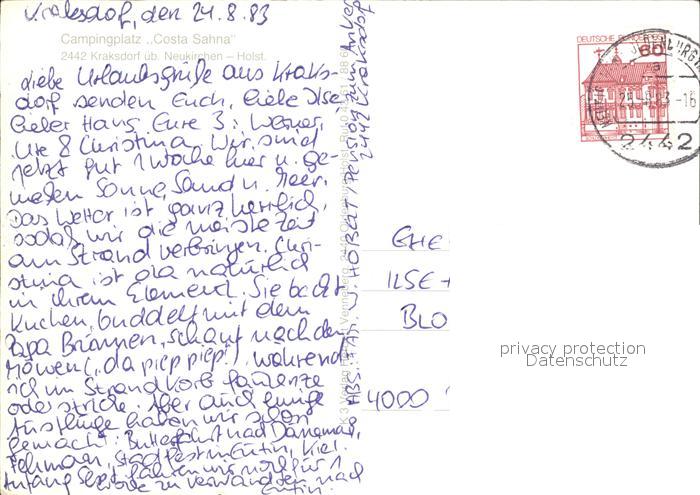 Kraksdorf, den 24.8.83
Campingplatz „Costa Sahna"
2442 Kraksdorf üb. Neukirchen - Holst.
Liebe Urlaubsgrüße aus Kraks-
dorf senden Euch, liebe Ilse
lieber Hans, Eure 3: Werner,
Ute & Christina. Wir sind
jetzt gut 1 Woche hier u. ge-
nießen Sonne, Sand u. Meer.
Das Wetter ist ganz herrlich,
sodaß wir die meiste Zeit
am Strand verbringen. Chri-
stina ist da natürlich
in ihrem Element. Sie backt
Kuchen, buddelt mit dem
Papa Brunnen, schaut nach den
Möwen („da piep piep!"), während
ich im Strandkorb faulenze
oder stricke. Aber auch einige
Ausflüge haben wir schon
gemacht: Butterfahrt nach Dänemark,
Fehmarn, Stadtfest in Eutin, Kiel.
Anfang Sept. fahren wir noch für 1
Woche zu Verwandten nach
Eutin.
Abs.: Fam. W.
Pension zum Anker
2442 Kraksdorf
DEUTSCHE BUNDESPOST
60
-16
2442
EHE
ILSE +
BLO
4000
privacy protection
Datenschutz